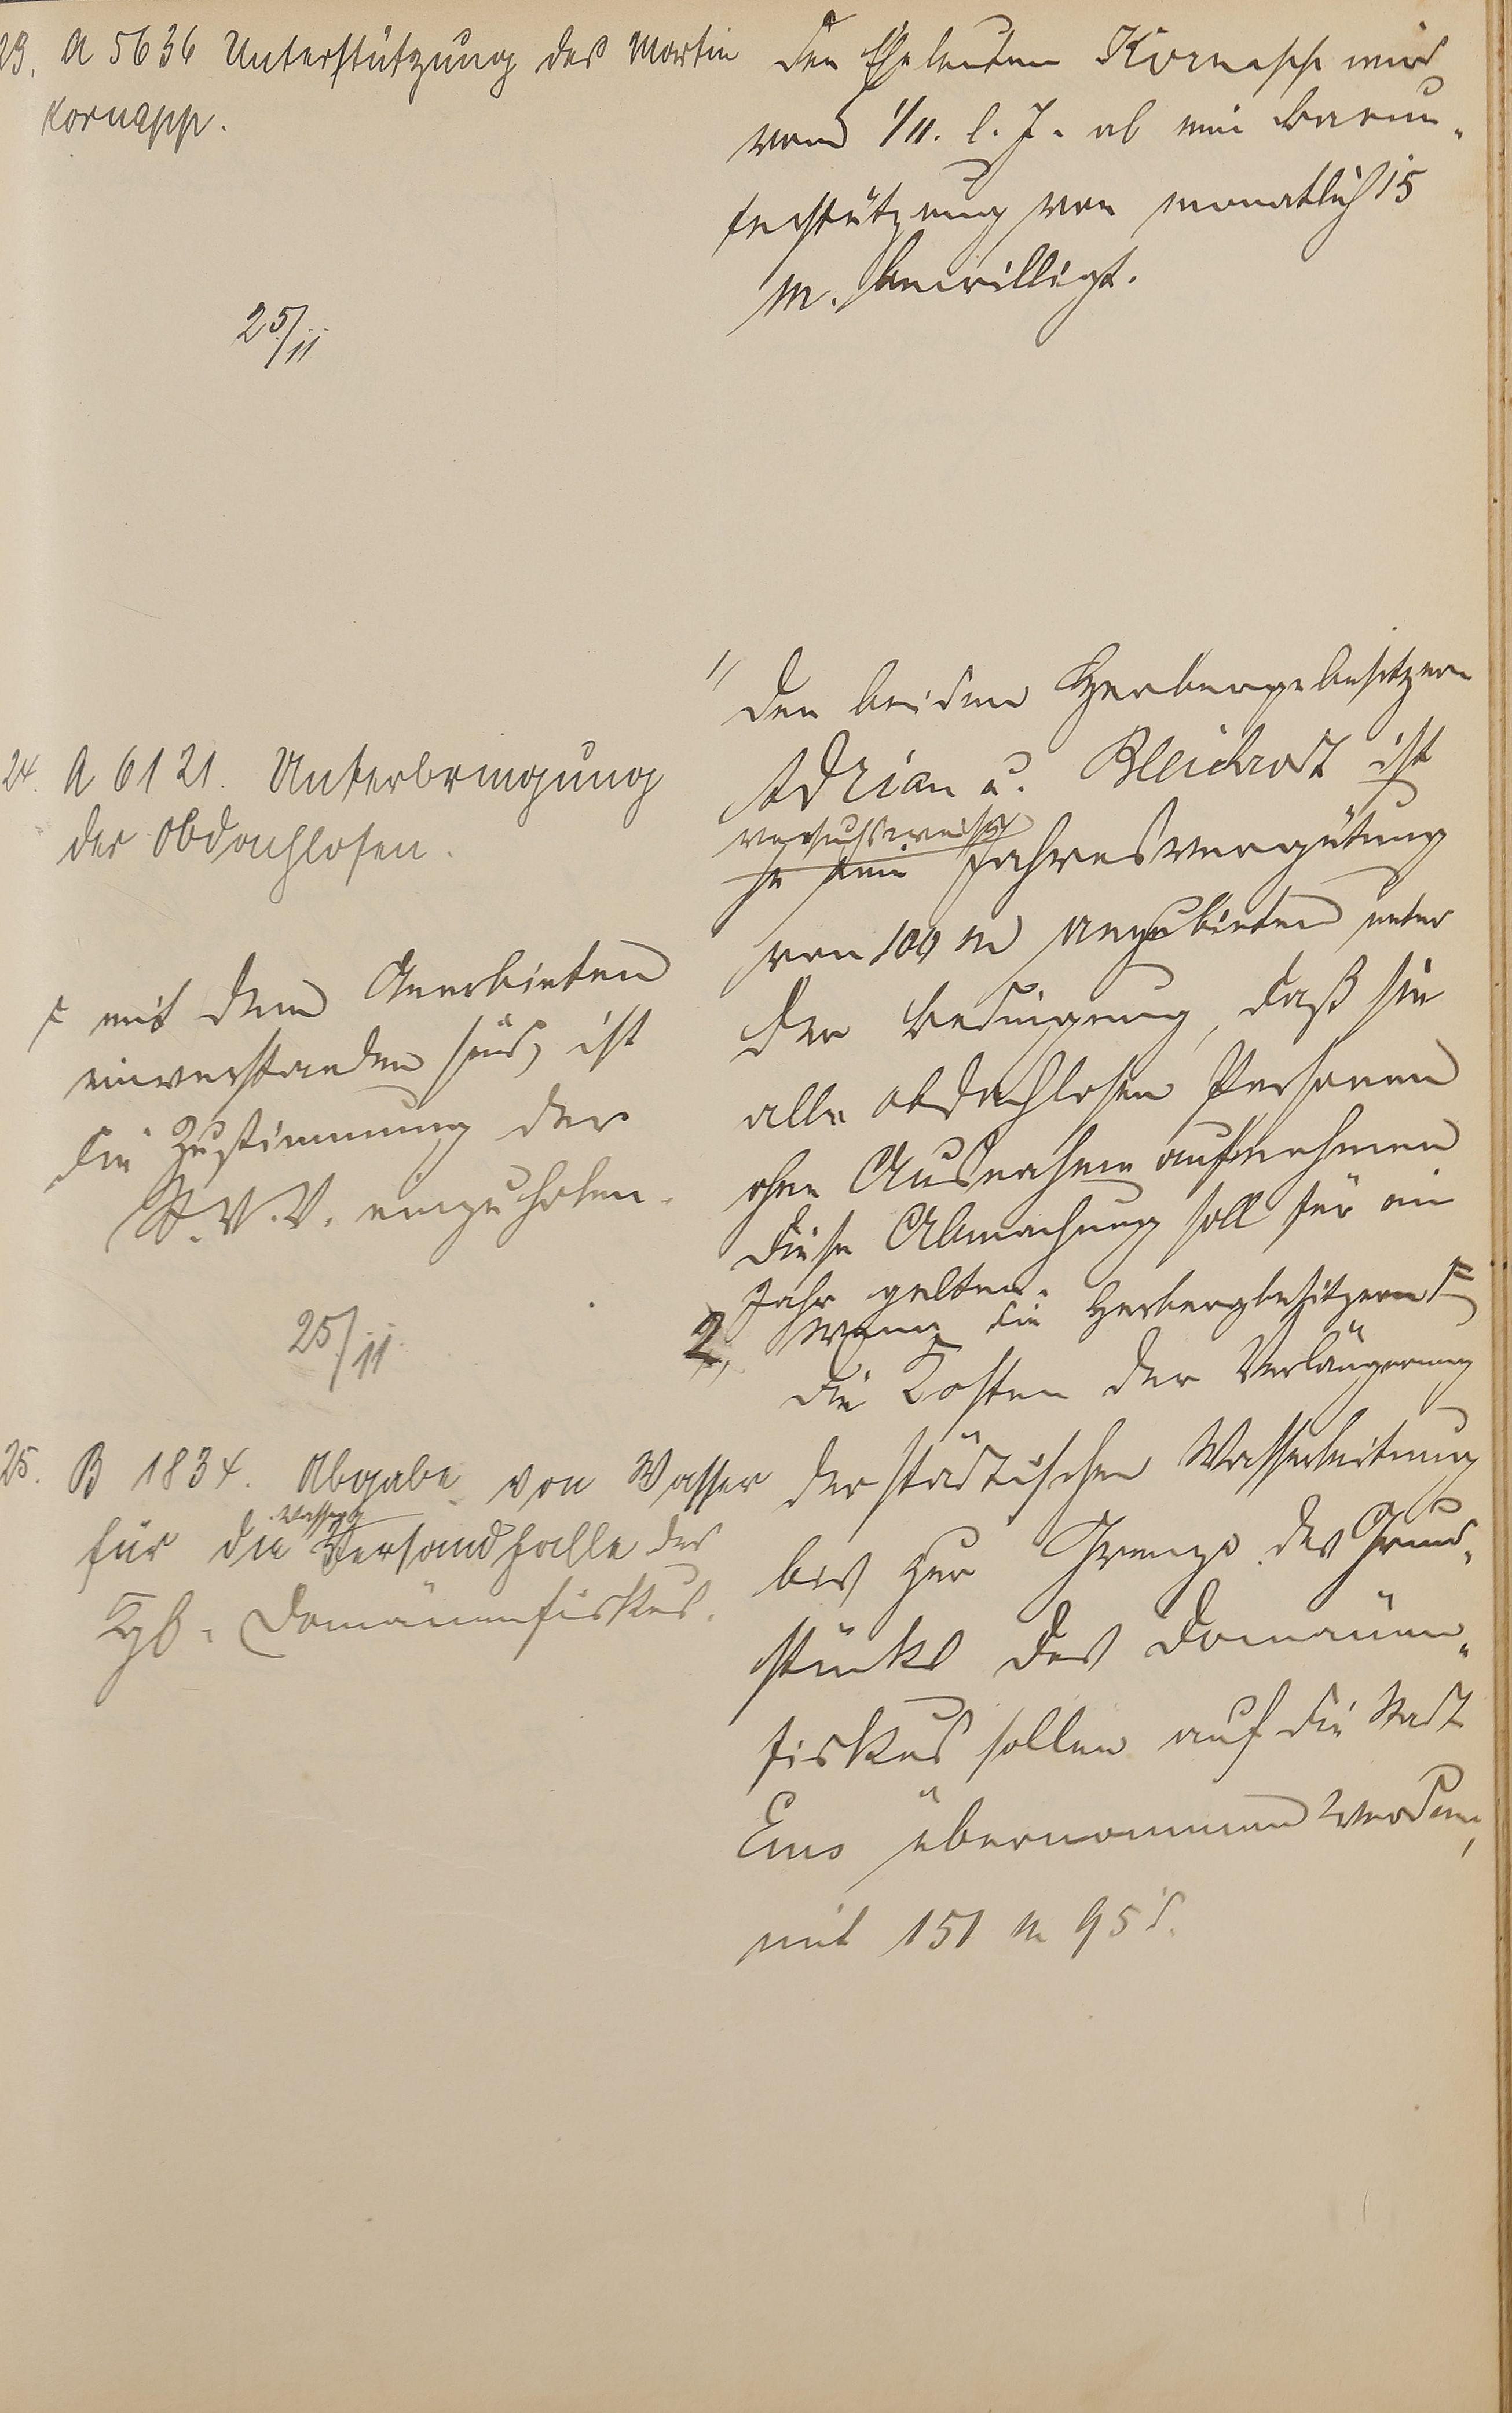 23. A 5636 Unterstützung des Martin
Kornapp.
25/11
Den Eheleuten Kornapp wird
vom 1/11. l. J. ab eine Barun-
terstützung von monatlich 15
M. bewilligt.
24. A 6121. Unterbringung
der Obdachlosen.
1/
Den beiden Herbergebesitzern
Adrian u. Bleichrodt ist
versuchsweise
je eine Jahresvergütung
von 100 M anzubieten unter
der Bedingung, daß sie
alle obdachlosen Personen
ohne Ausnahme aufnehmen
Diese Abmachung soll für ein
Jahr gelten.
2, Wenn die Herbergbesitzern
mit dem Anerbieten
einverstanden sind, ist
die Zustimmung der
St. V. V. einzuholen.
25/11.
25. B 1834. Abgabe von Wasser
für die Wasser
Versandhalle des
Kgl. Domänenfiskus.
Die Kosten der Verlängerung
der städtischen Wasserleitung
bis zur Grenze des Grund-
stücks des Domänen-
fiskus sollen auf die Stadt
Ems übernommen werden,
mit 151 M 95 d.